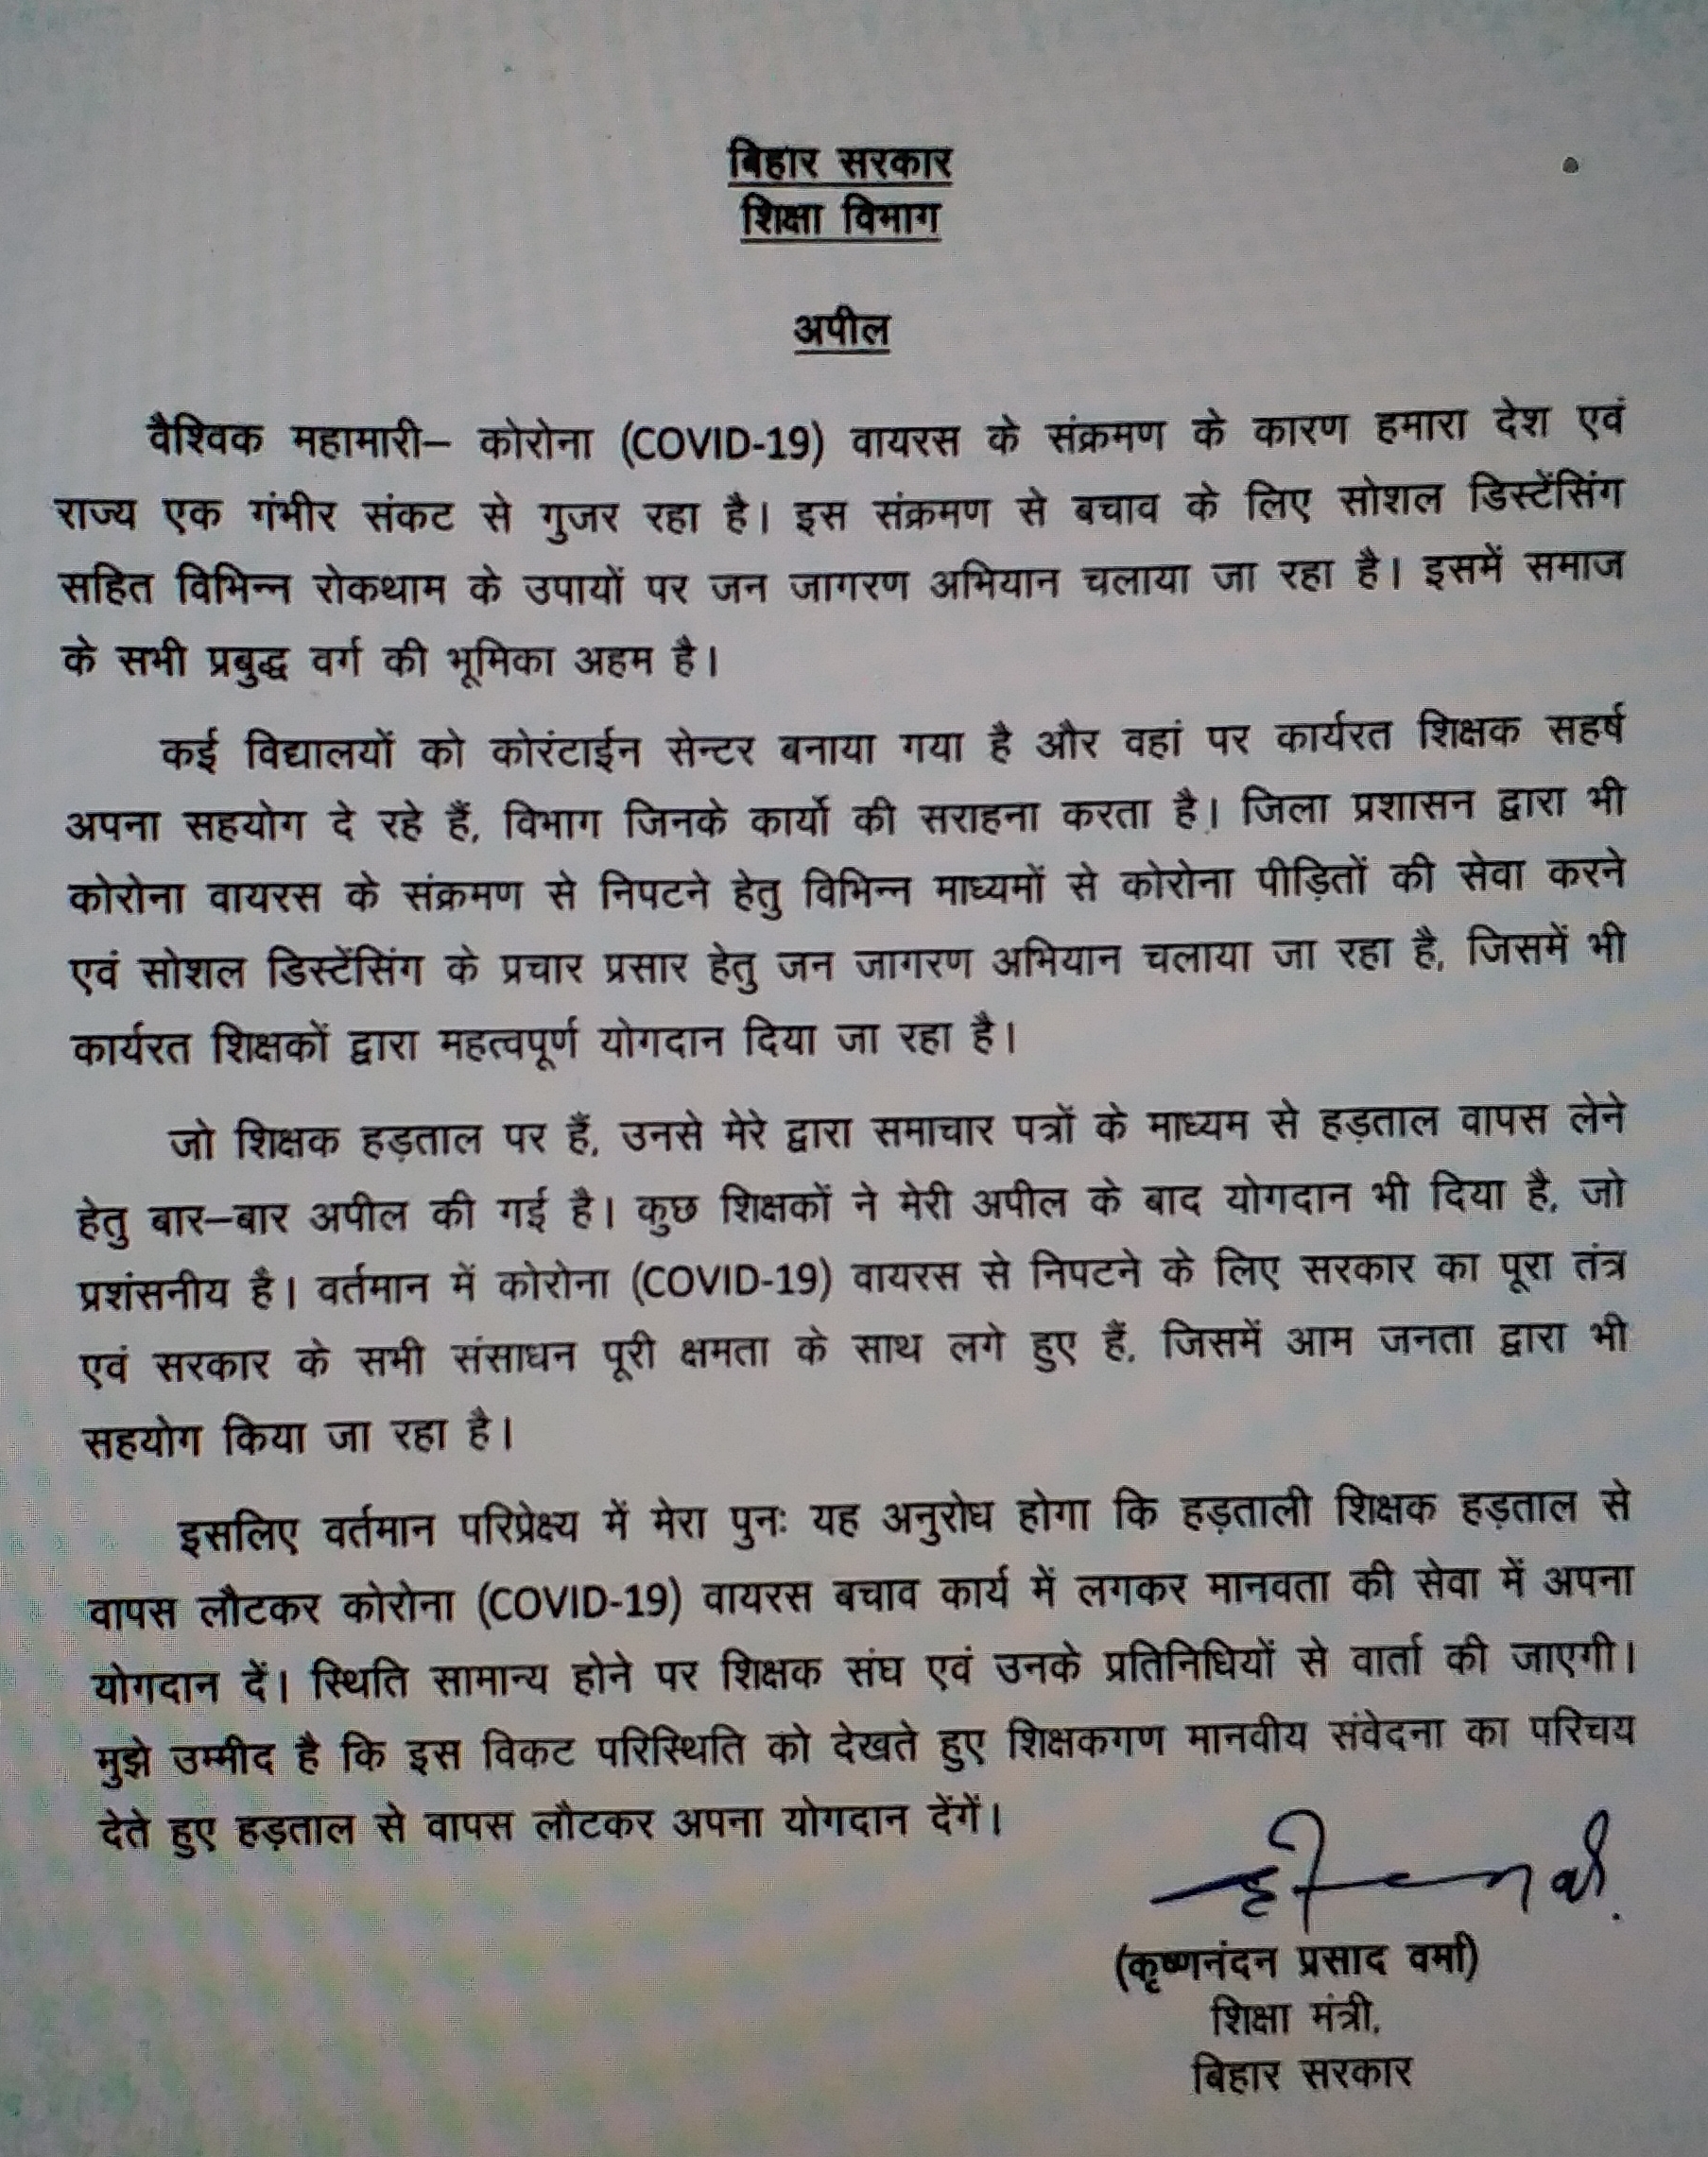 बिहार सरकार
शिक्षा विभाग
अपील
वैश्विक महामारी– कोरोना (COVID-19) वायरस के संक्रमण के कारण हमारा देश एवं
राज्य एक गंभीर संकट से गुजर रहा है। इस संक्रमण से बचाव के लिए सोशल डिस्टेंसिंग
सहित विभिन्न रोकथाम के उपायों पर जन जागरण अभियान चलाया जा रहा है। इसमें समाज
के सभी प्रबुद्ध वर्ग की भूमिका अहम है।
कई विद्यालयों को कोरंटाईन सेन्टर बनाया गया है और वहां पर कार्यरत शिक्षक सहर्ष
अपना सहयोग दे रहे हैं, विभाग जिनके कार्यो की सराहना करता है। जिला प्रशासन द्वारा भी
कोरोना वायरस के संक्रमण से निपटने हेतु विभिन्न माध्यमों से कोरोना पीड़ितों की सेवा करने
एवं सोशल डिस्टेंसिंग के प्रचार प्रसार हेतु जन जागरण अभियान चलाया जा रहा है, जिसमें भी
कार्यरत शिक्षकों द्वारा महत्वपूर्ण योगदान दिया जा रहा है।
जो शिक्षक हड़ताल पर हैं, उनसे मेरे द्वारा समाचार पत्रों के माध्यम से हड़ताल वापस लेने
हेतु बार–बार अपील की गई है। कुछ शिक्षकों ने मेरी अपील के बाद योगदान भी दिया है, जो
प्रशंसनीय है। वर्तमान में कोरोना (COVID-19) वायरस से निपटने के लिए सरकार का पूरा तंत्र
एवं सरकार के सभी संसाधन पूरी क्षमता के साथ लगे हुए हैं, जिसमें आम जनता द्वारा भी
सहयोग किया जा रहा है।
इसलिए वर्तमान परिप्रेक्ष्य में मेरा पुनः यह अनुरोध होगा कि हड़ताली शिक्षक हड़ताल से
वापस लौटकर कोरोना (COVID-19) वायरस बचाव कार्य में लगकर मानवता की सेवा में अपना
योगदान दें। स्थिति सामान्य होने पर शिक्षक संघ एवं उनके प्रतिनिधियों से वार्ता की जाएगी।
मुझे उम्मीद है कि इस विकट परिस्थिति को देखते हुए शिक्षकगण मानवीय संवेदना का परिचय
देते हुए हड़ताल से वापस लौटकर अपना योगदान देंगें।
(कृष्णनंदन प्रसाद वर्मा)
शिक्षा मंत्री,
बिहार सरकार